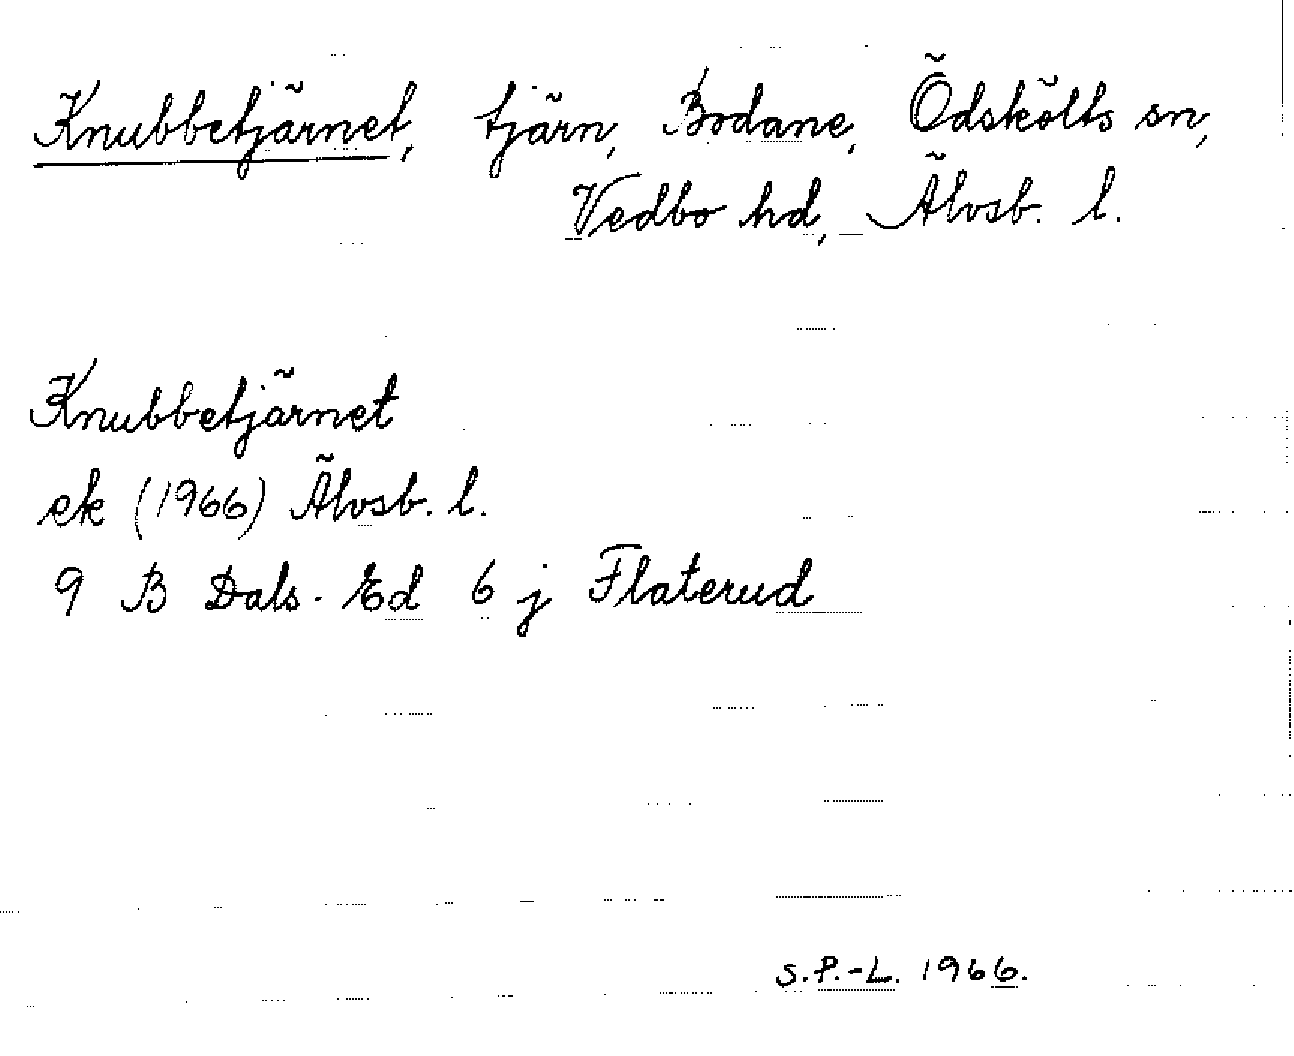 Knubbetjärnet, tjärn, Bodane, Ödskölts sn,
Vedbo hd, Älvsb. l.
Knubbetjärnet
ek (1966) Älvsb. l.
9 B Dals-Ed 6 j Flaterud
S.P.-L. 1966.